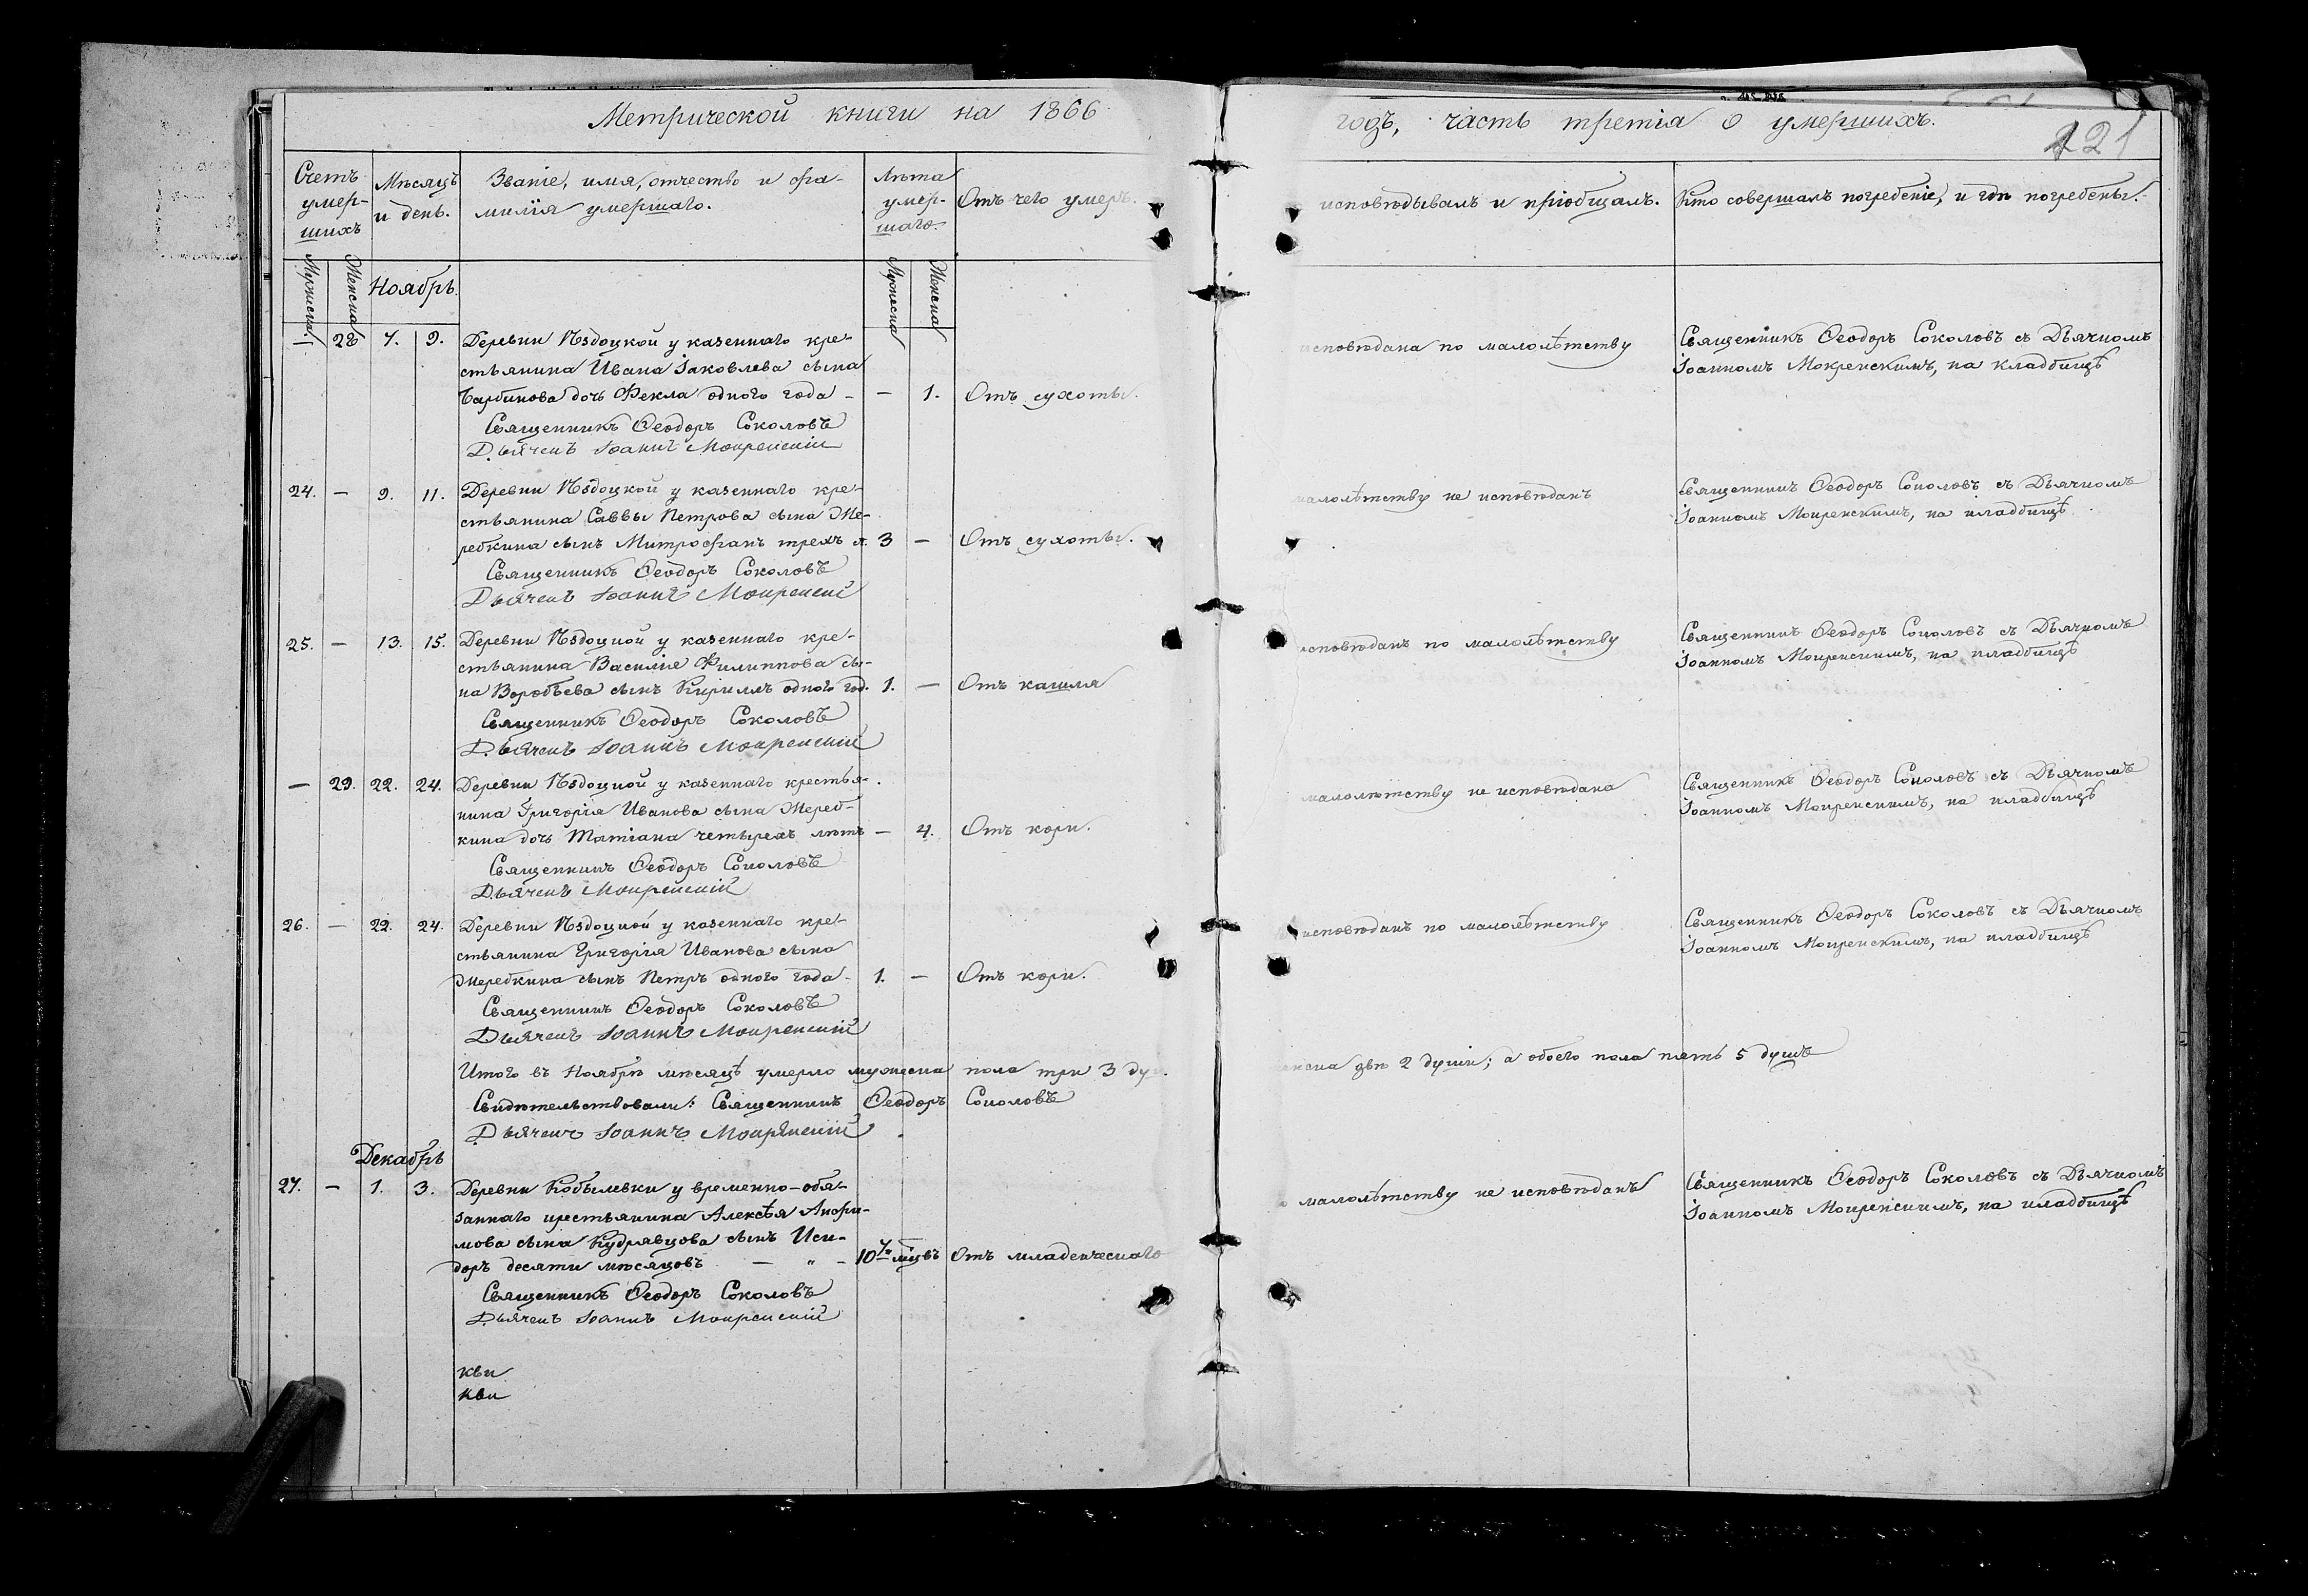 Метрической книги на 1866
годъ, часть третiя о умершихъ.
121
Счетъ умер-шихъ
Мѣсяцъ и день.
Званiе, имя, отчество и фа-
милiя умершаго.
Лѣта умер-шаго.
Отъ чего умеръ.
исповѣдывалъ и прiобщалъ.
Кто совершалъ погребенiе, и гдѣ погребены.
Мужеска
Женска
Ноябрь.
Мужеска
Женска
— 28 7. 9. Деревни Ѣздоцкой у казеннаго кре-
стьянина Ивана Iаковлева сына
дочь Фекла одного года - — 1. Отъ сухоты.
Священникъ Ѳеодоръ Соколовъ
Дьячекъ Iоаннъ Мокренскiй
исповѣдана по малолѣтству
Священникъ Ѳеодоръ Соколовъ съ Дьячкомъ
Iоанномъ Мокренскимъ, на кладбищѣ
24. — 9. 11. Деревни Ѣздоцкой у казеннаго кре-
стьянина Саввы Петрова сына Же-
ребкина сынъ Митрофанъ трехъ л. 3 — Отъ сухоты.
Священникъ Ѳеодоръ Соколовъ
Дьячекъ Iоаннъ Мокренскiй
малолѣтству не исповѣданъ
Священникъ Ѳеодоръ Соколовъ съ Дьячкомъ
Iоанномъ Мокренскимъ, на кладбищѣ
25. — 13. 15. Деревни Ѣздоцкой у казеннаго кре-
стьянина Василiя Филиппова сы-
на Воробьева сынъ Кириллъ одного год. 1. — Отъ кашля
Священникъ Ѳеодоръ Соколовъ
Дьячекъ Iоаннъ Мокренскiй
исповѣданъ по малолѣтству
Священникъ Ѳеодоръ Соколовъ съ Дьячкомъ
Iоанномъ Мокренскимъ, на кладбищѣ
— 29. 22. 24. Деревни Ѣздоцкой у казеннаго крестья-
нина Григорiя Иванова сына Жереб-
кина дочь Татiана четырехъ лѣтъ — 4. Отъ кори.
Священникъ Ѳеодоръ Соколовъ
Дьячекъ Мокренскiй
малолѣтству не исповѣдана
Священникъ Ѳеодоръ Соколовъ съ Дьячкомъ
Iоанномъ Мокренскимъ, на кладбищѣ
26. — 22. 24. Деревни Ѣздоцкой у казеннаго кре-
стьянина Григорiя Иванова сына
Жеребкина сынъ Петръ одного года - 1. — Отъ кори.
Священникъ Ѳеодоръ Соколовъ
Дьячекъ Iоаннъ Мокренскiй
исповѣданъ по малолѣтству
Священникъ Ѳеодоръ Соколовъ съ Дьячкомъ
Iоанномъ Мокренскимъ, на кладбищѣ
Итого въ Ноябрѣ мѣсяцѣ умерло мужеска пола три 3 ду
женска двѣ 2 души; а обоего пола пять 5 душъ
Свидѣтельствовали: Священникъ Ѳеодоръ Соколовъ
Дьячекъ Iоаннъ Мокренскiй
Декабрь
27. — 1. 3. Деревни Кобылевки у временно-обя-
заннаго крестьянина Алексѣя Анфи-
мова сына Кудрявцова сынъ Иси-
доръ десяти мѣсяцовъ — „ - 10 мцвъ Отъ младенческаго
Священникъ Ѳеодоръ Соколовъ
Дьячекъ Iоаннъ Мокренскiй
малолѣтству не исповѣданъ
Священникъ Ѳеодоръ Соколовъ съ Дьячкомъ
Iоанномъ Мокренскимъ, на кладбищѣ
кви
кви